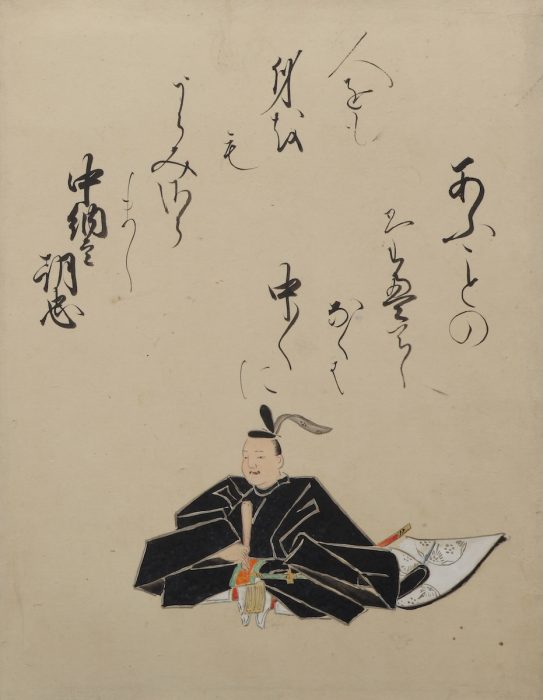 あふことの
たえてし
なくは
中〱に
人をも
身を
も
うらみさら
まし
中納言
朝忠